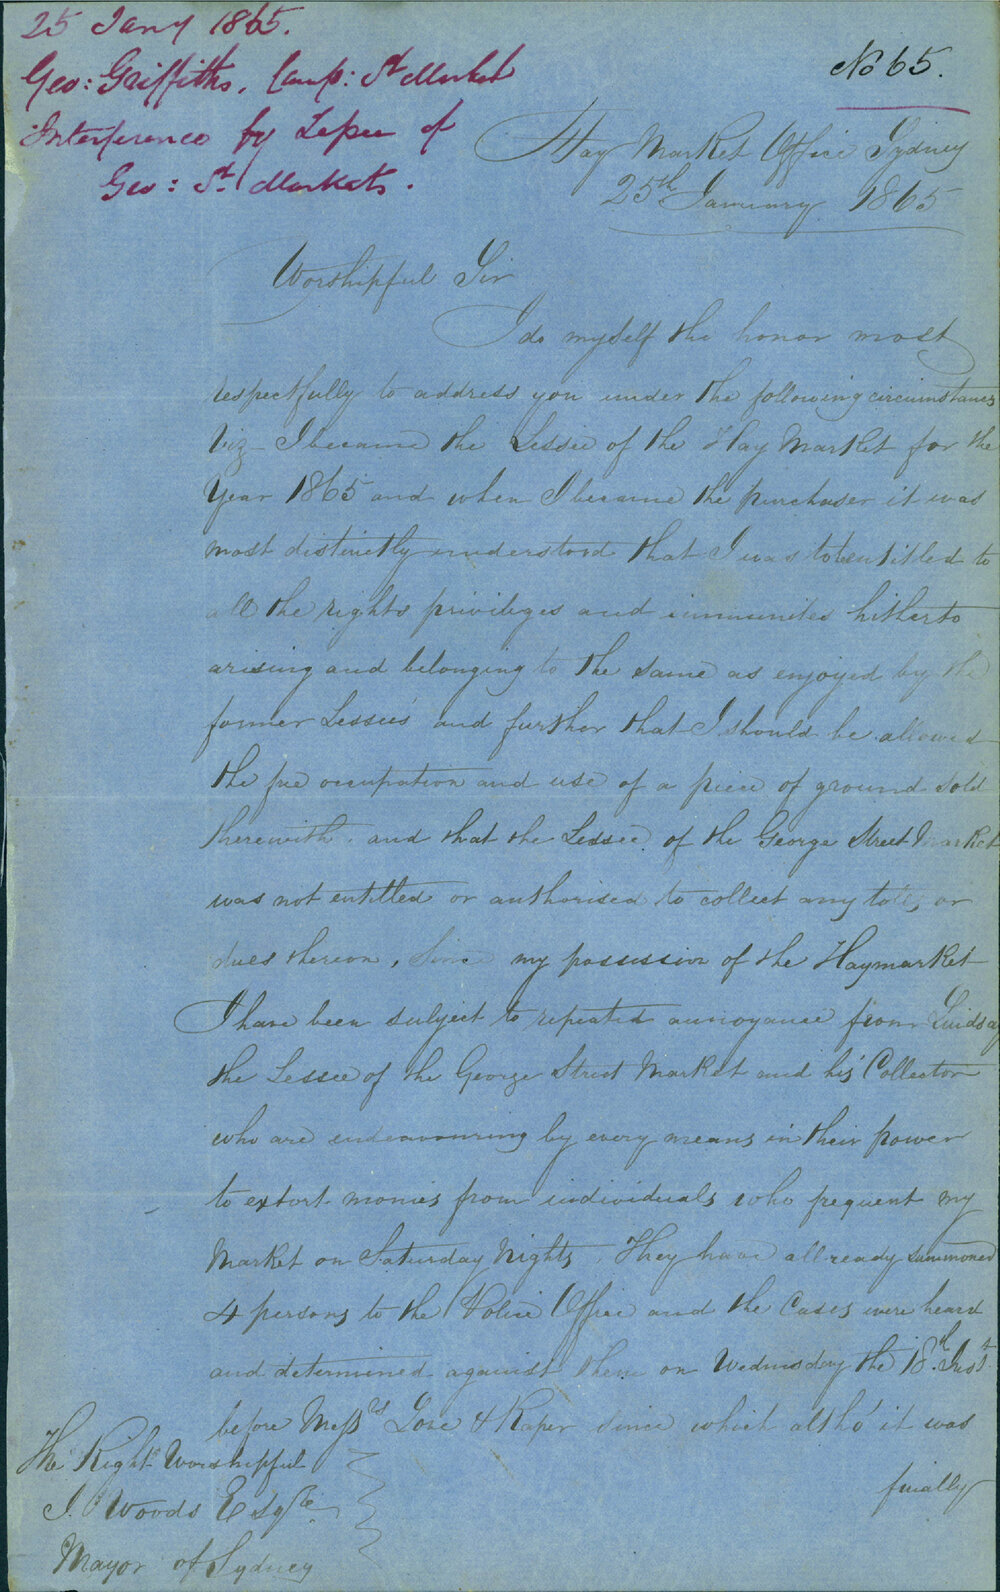 25 Jany 1865.
Geo: Griffiths, Camp: St Market
Interference by Lessee of
Geo: St. Markets.
No 65.
Hay Market Office Sydney
25th January 1865
Worshipful Sir
I do myself the honor most
respectfully to address you under the following circumstances
Viz I became the Lessee of the Hay Market for the
Year 1865 and when I became the purchaser it was
most distinctly understood that I was to be entitled to
all the rights privileges and immunites hitherto
arising and belonging to the same as enjoyed by the
former Lessees and further that I should be allowed
the pre occupation and use of a piece of ground sold
therewith, and that the Lessee of the George Street Market
was not entitled or authorised to collect any tolls, or
dues thereon, Since my possession of the Haymarket
I have been subject to repeated annoyance from Lindsay
the Lessee of the George Street Market and his Collector
who are endeavouring by every means in their power
to extort monies from individuals who frequent my
Market on Saturday Nights, They have allready summoned
4 persons to the Police Office and the Cases were heard
and determined against them on Wednesday the 18th Inst
before Messrs Love & Raper since which altho' it was
finally
The Right Worshipful
J. Woods Esqre
Mayor of Sydney